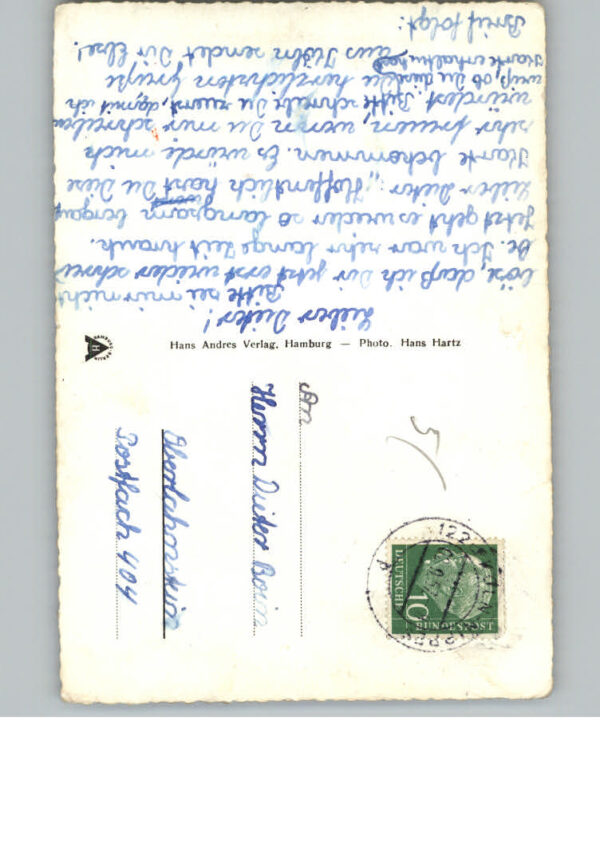 Lieber Dieter!
Bitte sei mir nicht
böse, daß ich Dir jetzt erst wieder schrei
be. Ich war sehr lange Zeit krank.
Jetzt geht es wieder so langsam bergauf
Lieber Dieter, Hoffentlich hast Du Diese
Karte bekommen. Es würde mich
sehr freuen, wenn Du mir schreiben
würdest. Bitte schreibe Du zuerst, damit ich
weiß, ob Du dieselbe herzlichsten Grüße
Karte erhalten hast aus Köln sendet Dir Else!
Brief folgt!
Hans Andres Verlag, Hamburg — Photo. Hans Hartz
HAMBURG BERLIN
H
An
Herrn Dieter Boin
Oberlahnstein
Postfach 404
5/
DEUTSCHE
BUNDESPOST
10
122